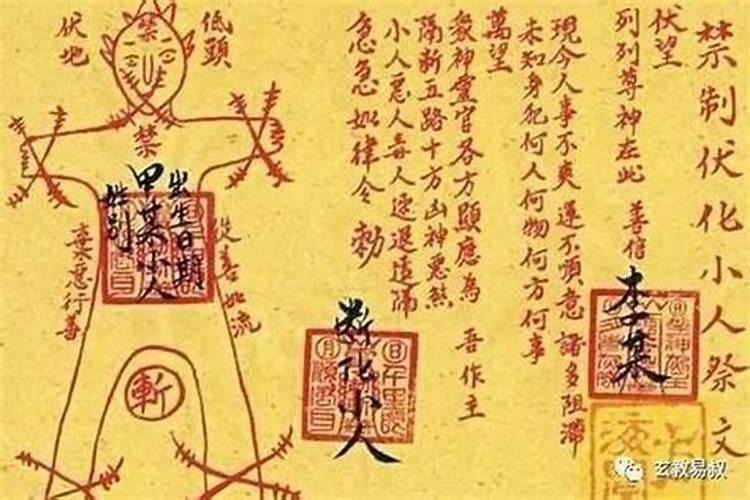 禁制伏化小人祭文
伏望
列列尊神在此 善信
李某
現今人事不爽 運不順意 諸多阻滞
未知身犯何人何物何方何事
萬望
眾神靈官各方顯應為 吾作主
隔斷五路十方凶神惡煞
小人惡人毒人速退遠隔
急急如律令 勅
斷化小人
低頭
伏地
禁
禁
出生日期
甲某小人
姓别
從善如流
棄惡行善
斬
玄教易叔